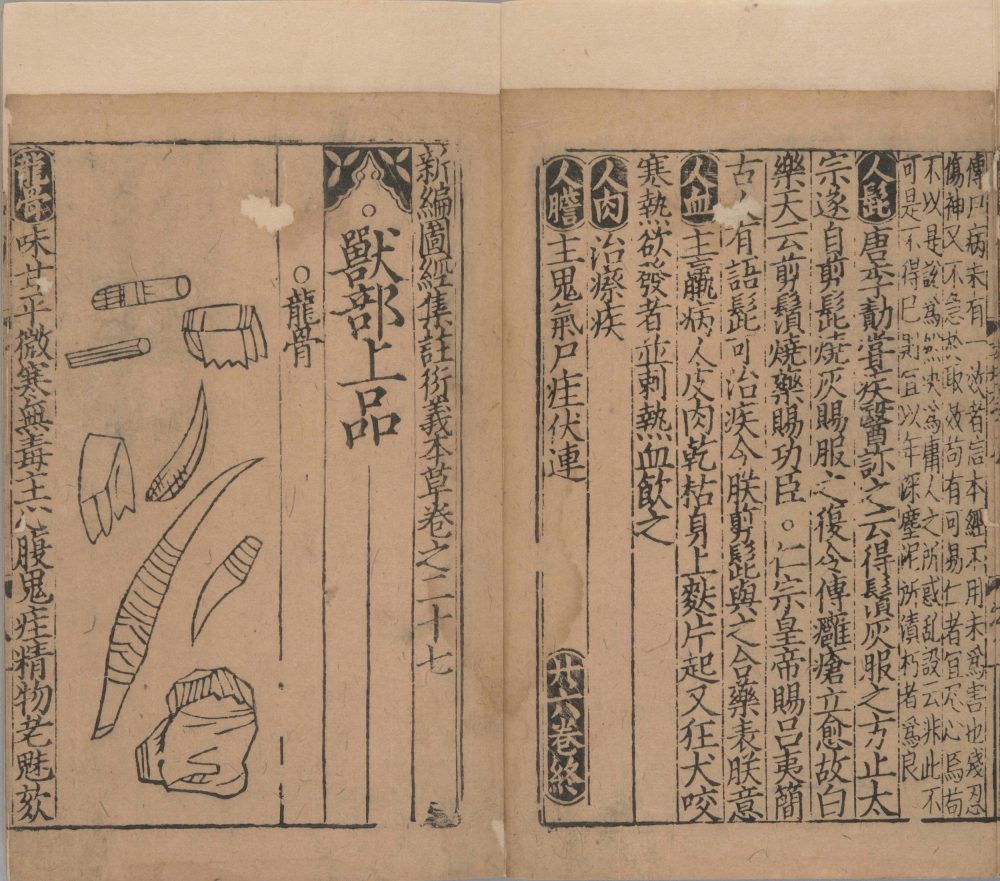 傳尸病未有一效者信本經不用未爲害也殘忍
傷神又不急於取效苟有可易仁者宜尽心焉苟
不以是說爲然决爲庸人之所惑乱設云非此不
可是不得已則宜以年深塵泥所漬朽者爲良
人髭 唐李勣嘗疾醫診之云得鬚灰服之方止太
宗遂自剪髭燒灰賜服之復令傅癰瘡立愈故白
樂天云剪鬚燒藥賜功臣○仁宗皇帝賜吕夷簡
古人有語髭可治疾今朕剪髭與之合藥表朕意
人血 主羸病人皮肉乾枯身上麩片起又狂犬咬
寒熱欲發者並刺熱血飲之
人肉 治瘵疾
人膽 主鬼氣尸疰伏連
廿六卷終
新編圖經集註衍義本草卷之二十七
○獸部上品
○龍骨
龍骨 味甘平微寒無毒主心腹鬼疰精物老魅欬